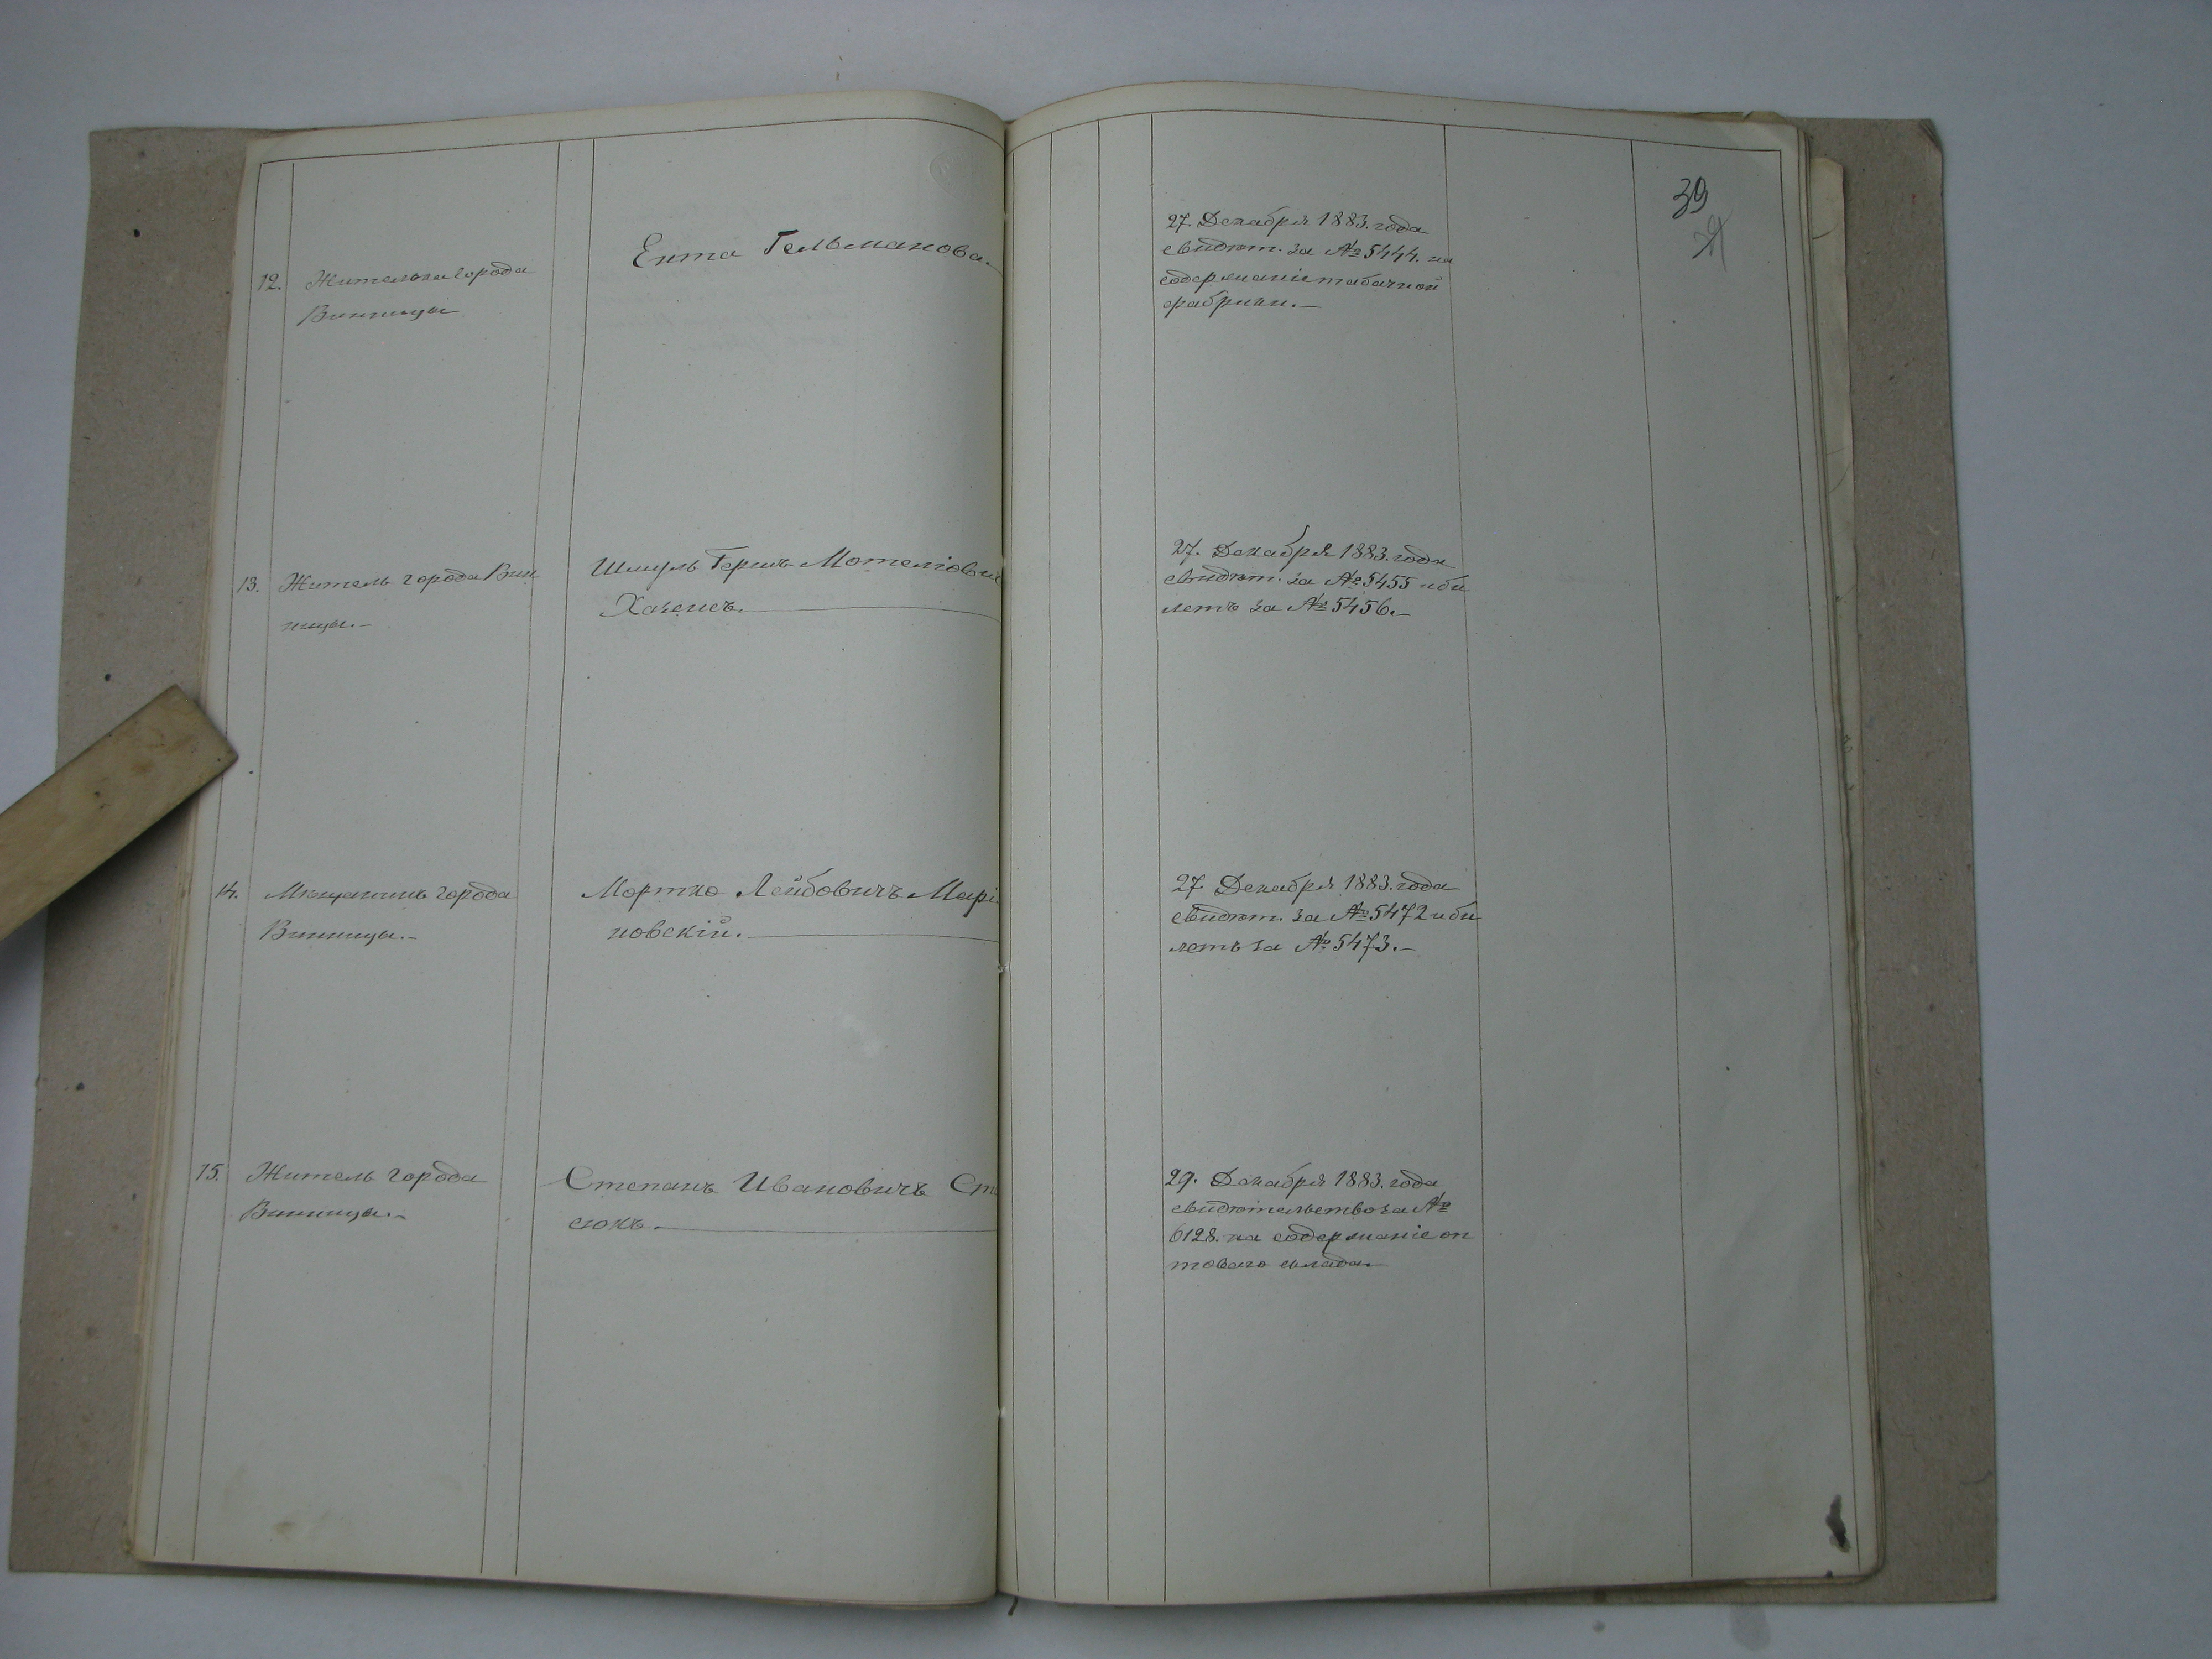 39
12. Жителька города
Винницы
Ента Гельманова.
27. Декабря 1883. года
свидѣт. за № 5444. на
содержаніе табачной
фабрики.—
13. Житель города Вин
ницы.—
Шмуль Гершъ Мотелiович
27. Декабря 1883. года
свидѣт. за № 5455 и би
летъ за № 5456.—
14. Мѣщанинъ города
Винницы.—
Мортко Лейбовичъ Марі
новскій.
27. Декабря 1883. года
свидѣт. за № 5472 и би
летъ за № 5473.—
15. Житель города
Винницы.—
Степанъ Ивановичъ Ст
сюкъ.
29. Декабря 1883. года
свидѣтельство за №
6128. на содержаніе оп
товаго склада